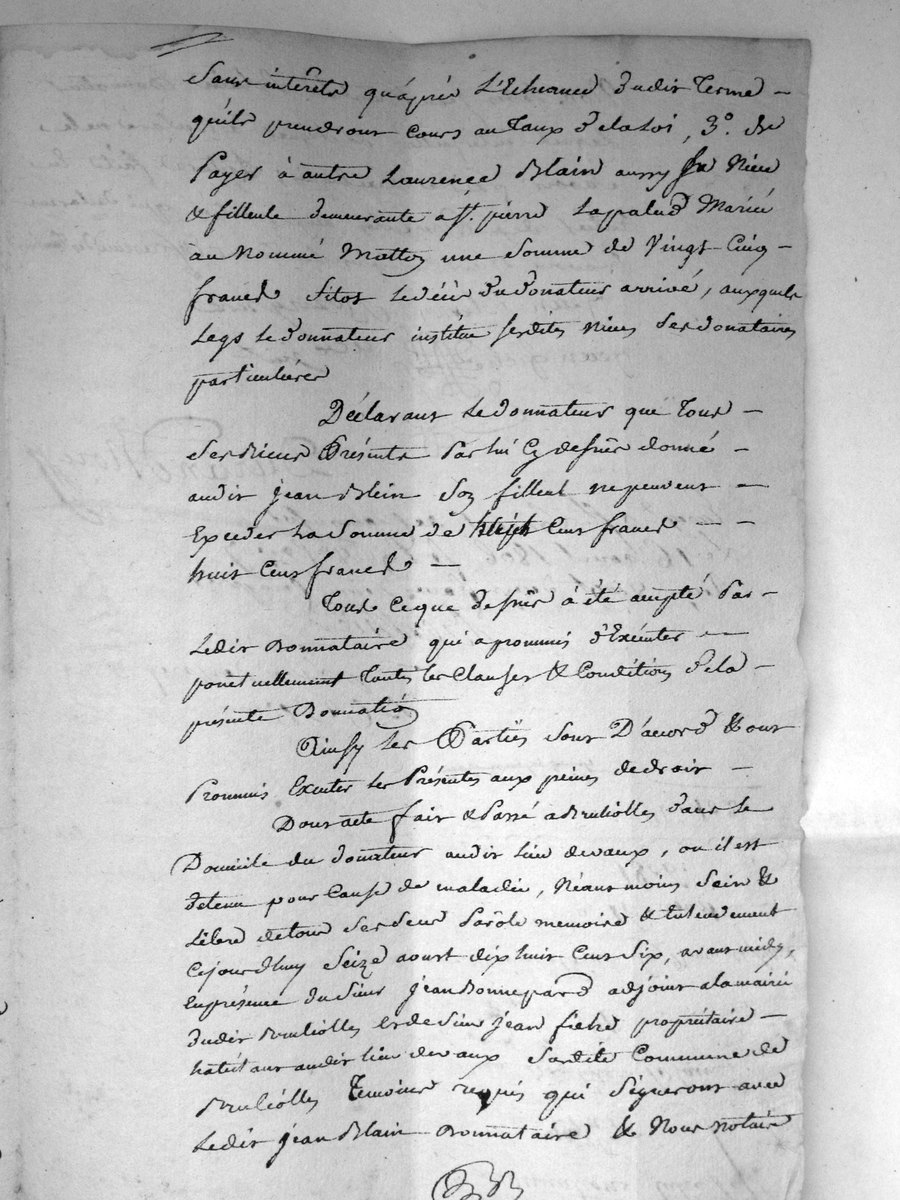 sans interêts qu'après L'Echeance dudit Terme
qu'ils prendront Cours au Taux de la Loi, 3.° de
Payer à autre Laurence Blain aussy sa Niece
& filleule demeurante a S.t pierre Lapalud Mariée
au Nommé Matton une Somme de Vingt Cinq
francs sitot le décès du donateur arrivé, auxquels
Legs Le donnateur institue sesdites Nieces Ses donataires
particulieres
Déclarant Le donnateur que Tous
Ses Biens Présents Par lui Cy dessus donné
audit jean Blein Son filleul ne peuvent
Exceder La Somme de Cens francs
huit Cens francs
Tout Ce que dessus à été accepté Par
Ledit Donnataire qui a prommis d'Exécuter
ponctuellement Toutes les Clauses & Conditions de la
présente Donnation
Ainsy les Parties sont D'accord & ont
Prommis Executer les Présentes aux peines de droit
Dont acte fait & Passé a Brulliolles dans le
Domicile du donateur audit Lieu devaux, ou il est
detenu pour Cause de maladie, Néantmoins Sain &
Libre de tous Ses Sens Parole memoire & Entendement
Cejourdhuy Seize aoust dix huit Cent Six, avant midy,
En présence du Sieur jean Bonnepard adjoint a la mairie
dudit Brulliolles Et de Sieur jean propriétaire
habitant audit lieu devaux Susdite Commune de
Brulliolles Temoins requis qui Signeront avec
Ledit jean Blain Donnataire & Nous Notaire